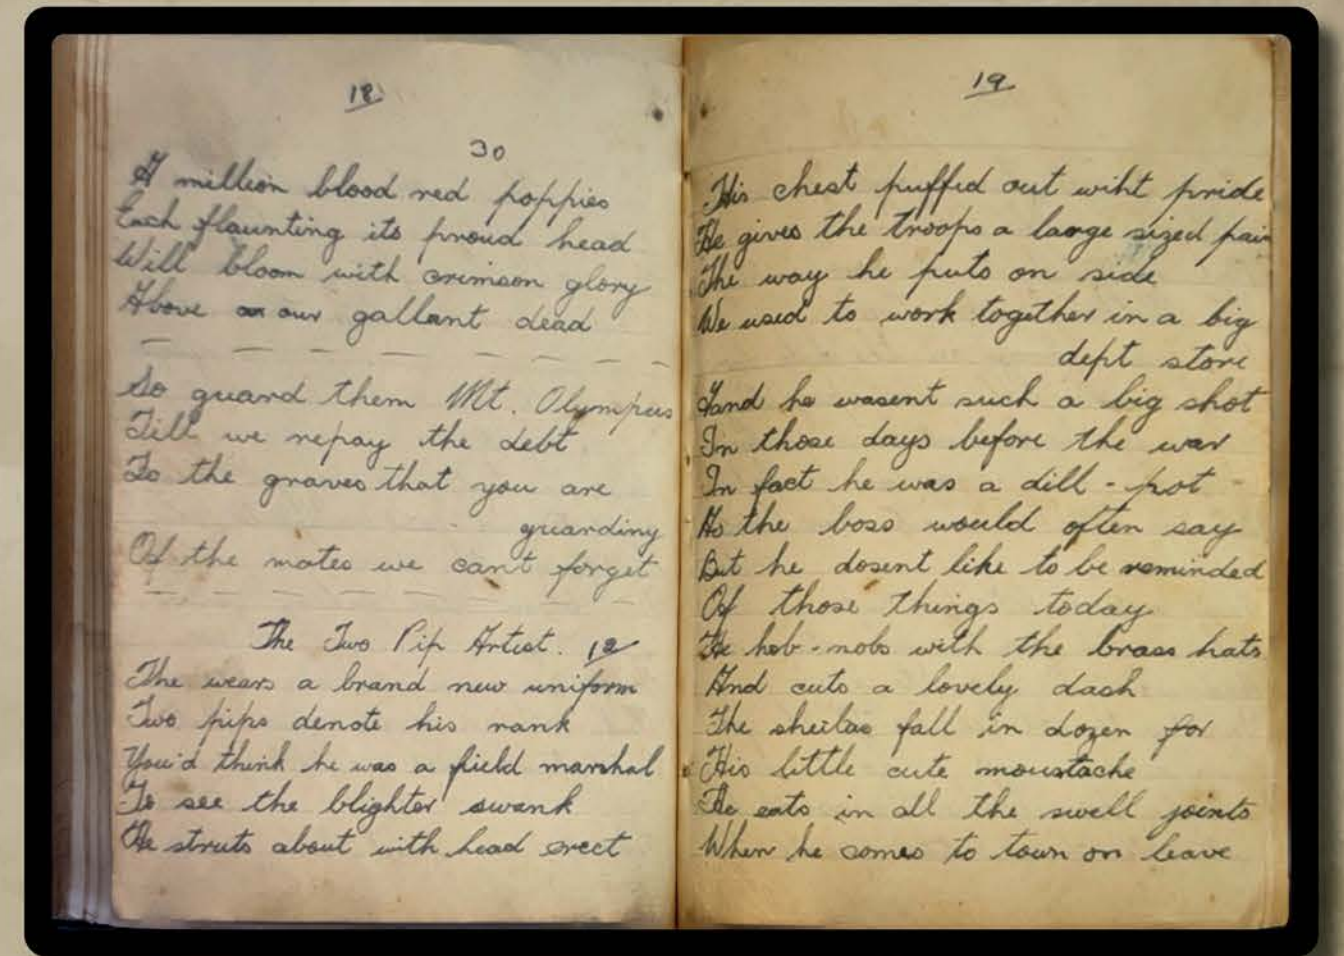 18
30
A million blood red poppies
Each flaunting its proud head
Will bloom with crimson glory
Above our gallant dead
So guard them Mt. Olympus
Till we repay the debt
To the graves that you are
guarding
Of the mates we cant forget
The Two Pip Artist. 12
The wears a brand new uniform
Two pips denote his rank
You'd think he was a field marshal
To see the blighter swank
He struts about with head erect
19
His chest puffed out wiht pride
He gives the troops a large sized pain
The way he puts on side
We used to work together in a big
dept store
And he wasent such a big shot
In those days before the war
In fact he was a dill-pot
As the boss would often say
But he dosent like to be reminded
Of those things today
He hob-nobs with the brass hats
And cuts a lovely dash
The sheilas fall in dozen for
His little cute moustache
He eats in all the swell joints
When he comes to town on leave